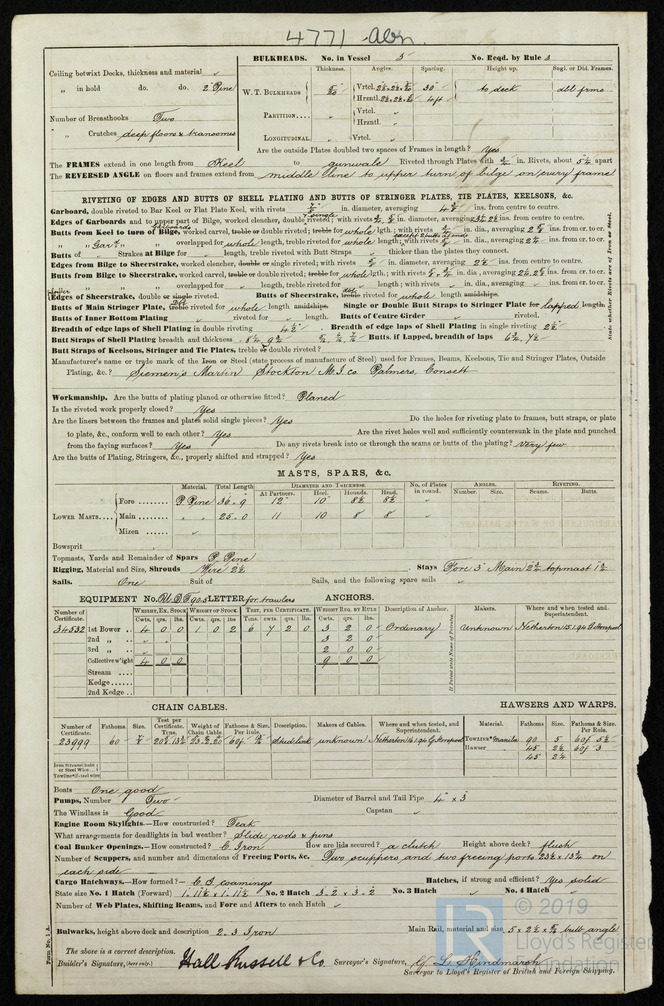 4771 Abn.
BULKHEADS. No. in Vessel 5 No. Reqd. by Rule 3
Ceiling betwixt Decks, thickness and material
" in hold do. do. 2" Pine
Thickness. Angles. Spacing. Height up. Sngl. or Dbl. Frames.
W. T. BULKHEADS Vrtcl. 30" to deck dbl frme
Hrzntl. 4ft
Number of Breasthooks Two
PARTITION Vrtcl.
Hrzntl.
" Crutches deep floors & transoms
LONGITUDINAL Vrtcl.
Are the outside Plates doubled two spaces of Frames in length? Yes
The FRAMES extend in one length from Keel to gunwale Riveted through Plates with in. Rivets, about apart
The REVERSED ANGLE on floors and frames extend from middle line to upper turn of bilge on every frame
RIVETING OF EDGES AND BUTTS OF SHELL PLATING AND BUTTS OF STRINGER PLATES, TIE PLATES, KEELSONS, &c.
Garboard, double riveted to Bar Keel or Flat Plate Keel, with rivets in. diameter, averaging ins. from centre to centre.
Edges of Garboards and to upper part of Bilge, worked clencher, double riveted; with rivets in diameter, averaging ins. from centre to centre.
Butts from Keel to turn of Bilge, worked carvel, treble or double riveted; treble for whole lgth; with rivets in. dia., averaging ins. from cr. to cr.
" " Garb'd " overlapped for whole length, treble riveted for whole length; with rivets in. dia., averaging ins. from cr. to cr.
Butts of Strakes at Bilge for length, treble riveted with Butt Straps thicker than the plates they connect.
Edges from Bilge to Sheerstrake, worked clencher, double or single riveted; with rivets in. diameter, averaging ins. from cr. to cr.
Butts from Bilge to Sheerstrake, worked carvel, treble or double riveted; treble for whole lgth; with rivets in. dia., averaging ins. from cr. to cr.
overlapped for length, treble riveted for length; with rivets in. dia., averaging ins. from cr. to cr.
Edges of Sheerstrake, double or single riveted. Butts of Sheerstrake, treble riveted for whole length amidships.
Butts of Main Stringer Plate, treble riveted for whole length amidships. Single or Double Butt Straps to Stringer Plate for lapped length.
Butts of Inner Bottom Plating riveted for length. Butts of Centre Girder riveted.
Breadth of edge laps of Shell Plating in double riveting Breadth of edge laps of Shell Plating in single riveting
Butt Straps of Shell Plating breadth and thickness Butts, if Lapped, breadth of laps
Butt Straps of Keelsons, Stringer and Tie Plates, treble or double riveted?
State whether Rivets are of Iron or Steel.
Manufacturer's name or triple mark of the Iron or Steel (state process of manufacture of Steel) used for Frames, Beams, Keelsons, Tie and Stringer Plates, Outside
Plating, &c.? Siemens Martin Stockton M. I. co. Palmers, Consett
Workmanship. Are the butts of plating planed or otherwise fitted? Planed
Is the riveted work properly closed? Yes
Are the liners between the frames and plates solid single pieces? Yes Do the holes for riveting plate to frames, butt straps, or plate
to plate, &c., conform well to each other? Yes Are the rivet holes well and sufficiently countersunk in the plate and punched
from the faying surfaces? Yes Do any rivets break into or through the seams or butts of the plating? Very few
Are the butts of Plating, Stringers, &c., properly shifted and strapped? Yes
MASTS, SPARS, &c.
Material. Total Length DIAMETER AND THICKNESS. No. of Plates in round. ANGLES. RIVETING.
At Partners. Heel. Hounds. Head. Number. Size. Seams. Butts.
LOWER MASTS Fore P. Pine 36.9 12" 10" 8½ 8½
Main " " 25.0 11 10 8 8
Mizen
Bowsprit
Topmasts, Yards and Remainder of Spars P. Pine
Rigging, Material and Size, Shrouds Wire 2½ Stays Fore 3" Main 2½ topmast 1½
Sails. One Suit of Sails, and the following spare sails
EQUIPMENT No. LETTER for trawlers ANCHORS.
Number of Certificate. WEIGHT, EX. STOCK WEIGHT OF STOCK. TEST, PER CERTIFICATE. WEIGHT REQ. BY RULE Description of Anchor. Makers. Where and when tested and Superintendent.
Cwts. qrs. lbs Cwts. qrs. lbs Tons. cwts. qrs. lbs. Cwts. qrs. lbs
34532 1st Bower 4 0 0 1 0 2 6 7 2 0 3 2 0 Ordinary unknown Netherton 15.1.94
2nd " 3 2 0
3rd " 2 0 0
Collective w'ight 4 0 0 9 0 0
Stream
Kedge
2nd Kedge
If Patent state Name of Patentee
CHAIN CABLES. HAWSERS AND WARPS.
Number of Certificate. Fathoms. Size. Test per Certificate. Tons. Weight of Chain Cable. Fathoms & Size Per Rule. Description. Makers of Cables. Where and when tested, and Superintendent. Material. Fathoms Size. Fathoms & Size Per Rule.
23999 60 Stud link unknown Netherton TOWLINE Manila 90 5 60f 5½
HAWSER 45 2½ 60f 3
45 2¼
Iron Stream Chain or Steel Wire
Towline if steel wire
Boats One good
Pumps, Number Two Diameter of Barrel and Tail Pipe 4" x 3"
The Windlass is Good Capstan
Engine Room Skylights.—How constructed? Teak
What arrangements for deadlights in bad weather? Slide rods & pins
Coal Bunker Openings.—How constructed? C. Iron How are lids secured? a clutch Height above deck? flush
Number of Scuppers, and number and dimensions of Freeing Ports, &c. Two scuppers and two freeing ports 23½ x 13½ on
each side
Cargo Hatchways.—How formed? C. I. coamings Hatches, if strong and efficient? Yes solid
State size No. 1 Hatch (Forward) 1. 11½ x 1. 11½ No. 2 Hatch 3.2 x 3.2 No. 3 Hatch No. 4 Hatch
Number of Web Plates, Shifting Beams, and Fore and Afters to each Hatch
Bulwarks, height above deck and description 2.3 Iron Main Rail, material and size, butt angle
The above is a correct description.
Builder's Signature, (here only.) Hall Russell & Co Surveyor's Signature, L. Hindmarsh
Surveyor to Lloyd's Register of British and Foreign Shipping.
Form No. 1 A.
LR
© 2019
Lloyd's Register
Foundation